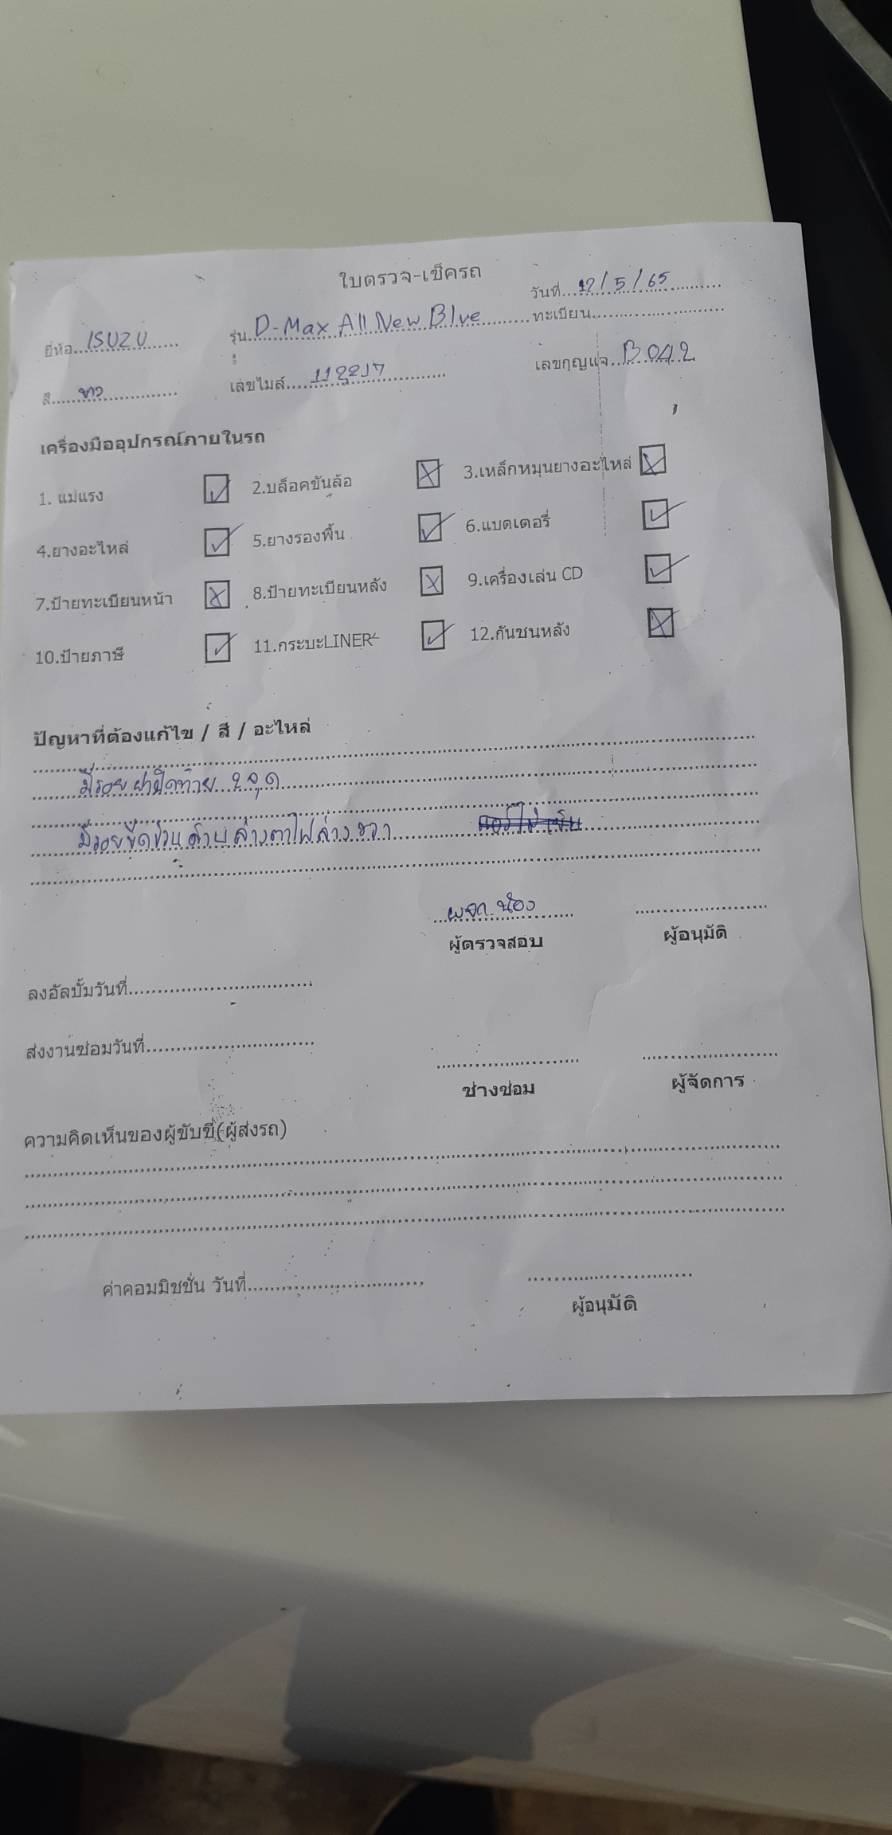 ใบตรวจ-เช็ครถ
วันที่...12/5/65
ยี่ห้อ...ISUZU... รุ่น...D-Max All New Blve...ทะเบียน...
สี...ขาว... เลขไมล์...118217... เลขกุญแจ...B042
เครื่องมืออุปกรณ์ภายในรถ
1. แม่แรง ☑ 2.บล๊อคขันล้อ ☒ 3.เหล็กหมุนยางอะไหล่ ☒
4.ยางอะไหล่ ☑ 5.ยางรองพื้น ☑ 6.แบตเตอรี่ ☑
7.ป้ายทะเบียนหน้า ☒ 8.ป้ายทะเบียนหลัง ☒ 9.เครื่องเล่น CD ☑
10.ป้ายภาษี ☑ 11.กระบะLINER ☑ 12.กันชนหลัง ☒
ปัญหาที่ต้องแก้ไข / สี / อะไหล่
มีรอยฝาปิดท้าย 2 จุด
มีรอยขีดข่วนด้านล่างตาไฟล่างขวา
น้อง
ผู้ตรวจสอบ ผู้อนุมัติ
ลงอัลบั้มวันที่...
ส่งงานซ่อมวันที่...
ช่างซ่อม ผู้จัดการ
ความคิดเห็นของผู้ขับขี่(ผู้ส่งรถ)
ค่าคอมมิชชั่น วันที่...
ผู้อนุมัติ